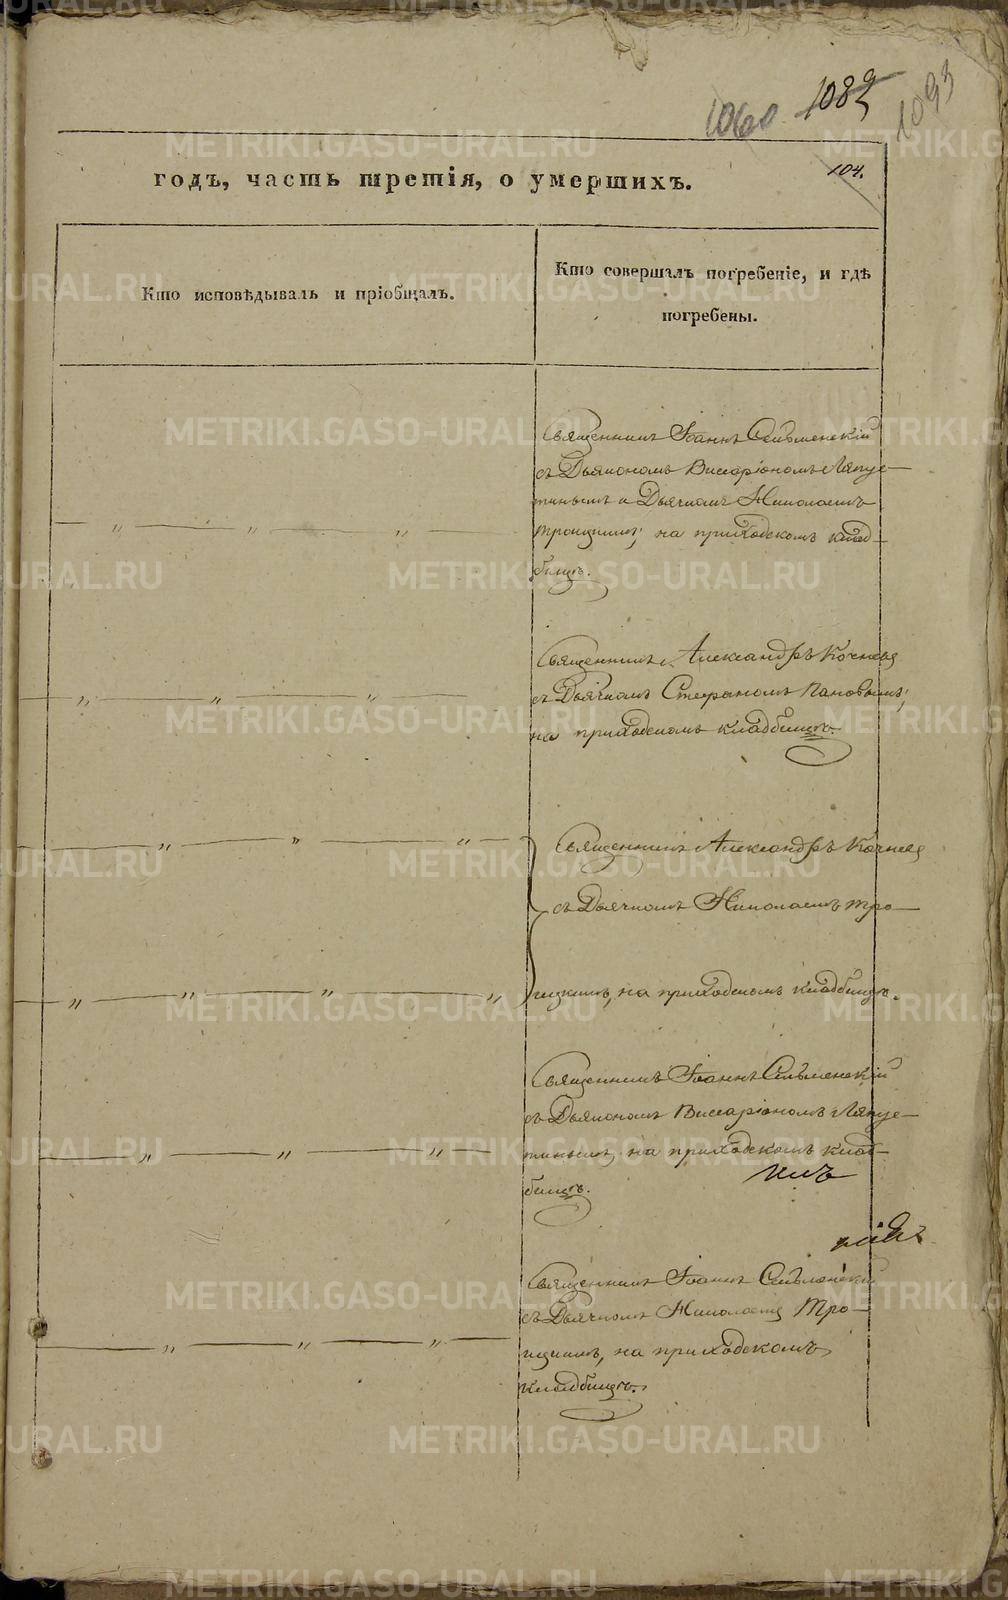 1060 1089 1093
104.
годъ, часть третія, о умершихъ.
Кто исповѣдывалъ и пріобщалъ.
Кто совершалъ погребеніе, и гдѣ
погребены.
Священникъ Іоаннъ Сельменскій
съ Дьякономъ Висаріономъ Ляпус-
тинымъ и Дьячкомъ Николаемъ
Троицкимъ; на приходскомъ клад-
бищѣ.
Священникъ Александръ Кочневъ
съ Дьячкомъ Стефаномъ Пановымъ;
на приходскомъ кладбищѣ.
Священникъ Александръ Кочнев
съ Дьячкомъ Николаемъ Тро-
ицкимъ, на приходскомъ кладбищѣ.
Священникъ Іоаннъ Сельменскій
съ Дьякономъ Висаріономъ Ляпус-
тинымъ, на приходскомъ клад-
бищѣ.
Священникъ Іоаннъ Сельменскій
съ Дьячкомъ Николаемъ Тро-
ицкимъ, на приходскомъ
кладбищѣ.
METRIKI.GASO-URAL.RU